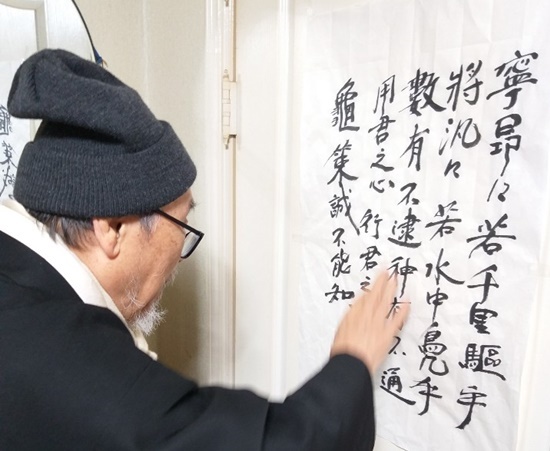 寧昂〻若千里驅乎
將汎〻若水中鳧乎
數有不逮神有不通
用君之心 行君之
龜策誠不能知
龜策誠